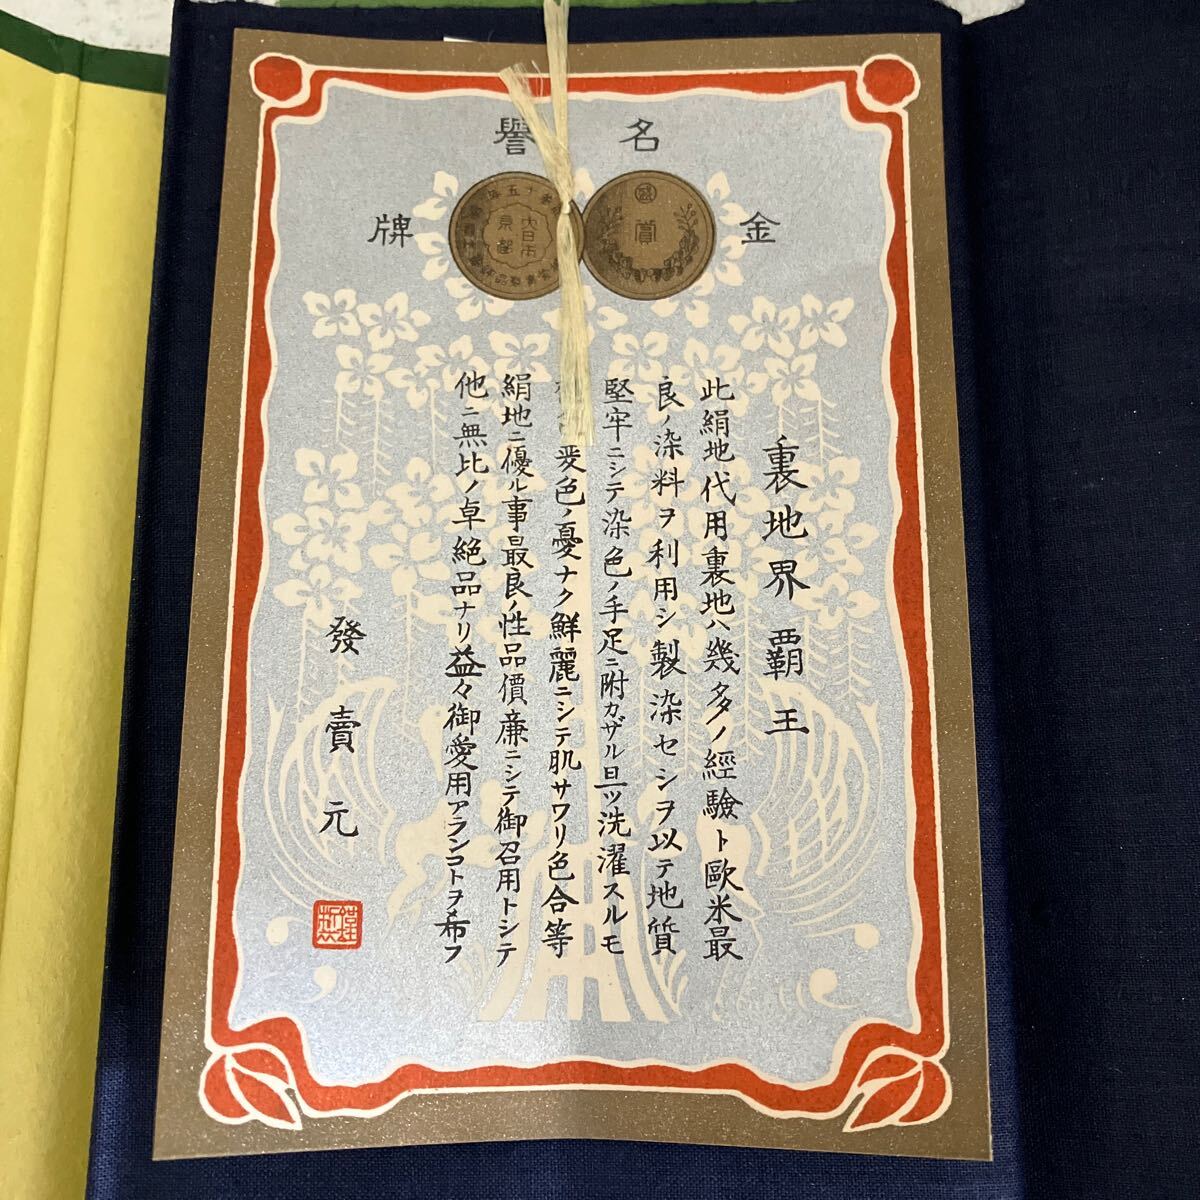 名譽
金牌
賞
大日本
京都
裏地界覇王
此絹地代用裏地ハ幾多ノ經驗ト歐米最
良ノ染料ヲ利用シ製染セシヲ以テ地質
堅牢ニシテ染色ノ手足ニ附カザル旦ツ洗濯スルモ
変色ノ憂ナク鮮麗ニシテ肌サワリ色合等
絹地ニ優ル事最良ノ性品價廉ニシテ御召用トシテ
他ニ無比ノ卓絶品ナリ益々御愛用アランコトヲ希フ
發賣元